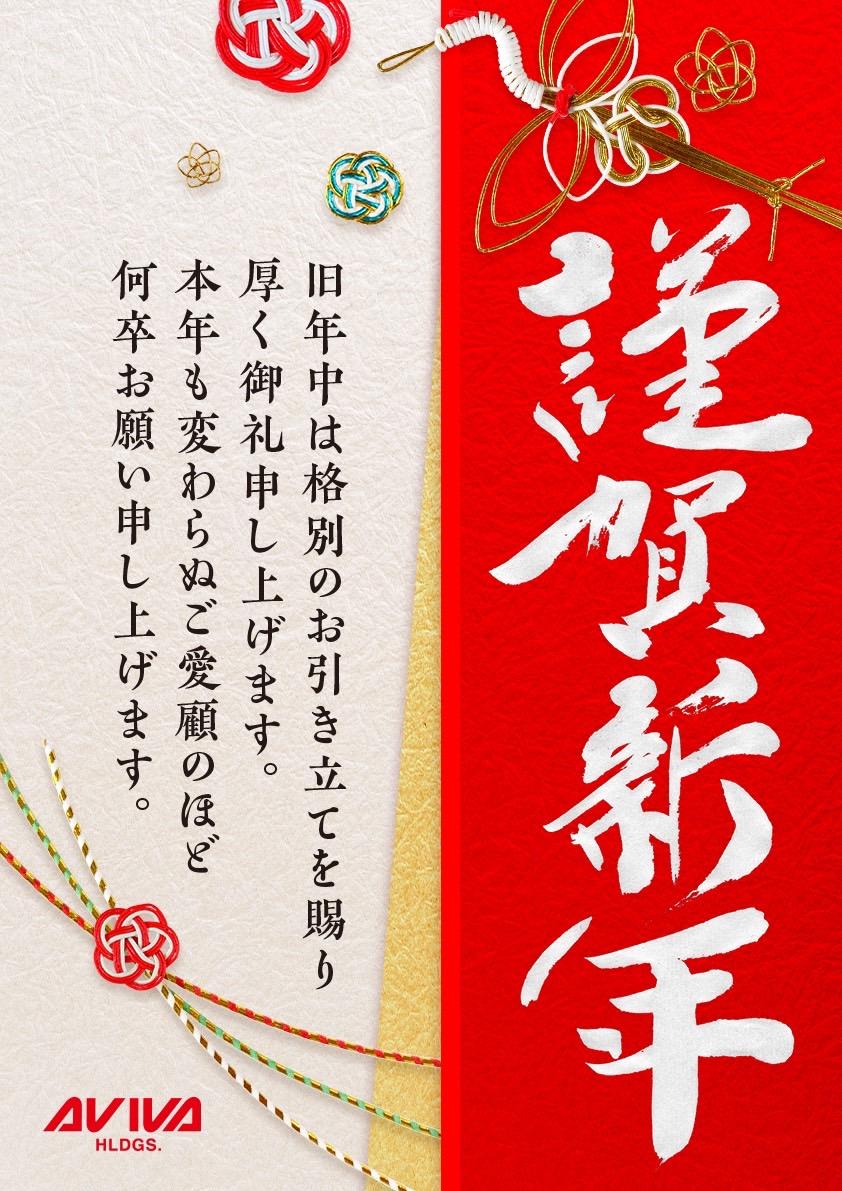 謹賀新年
旧年中は格別のお引き立てを賜り
厚く御礼申し上げます。
本年も変わらぬご愛顧のほど
何卒お願い申し上げます。
AVIVA
HLDGS.